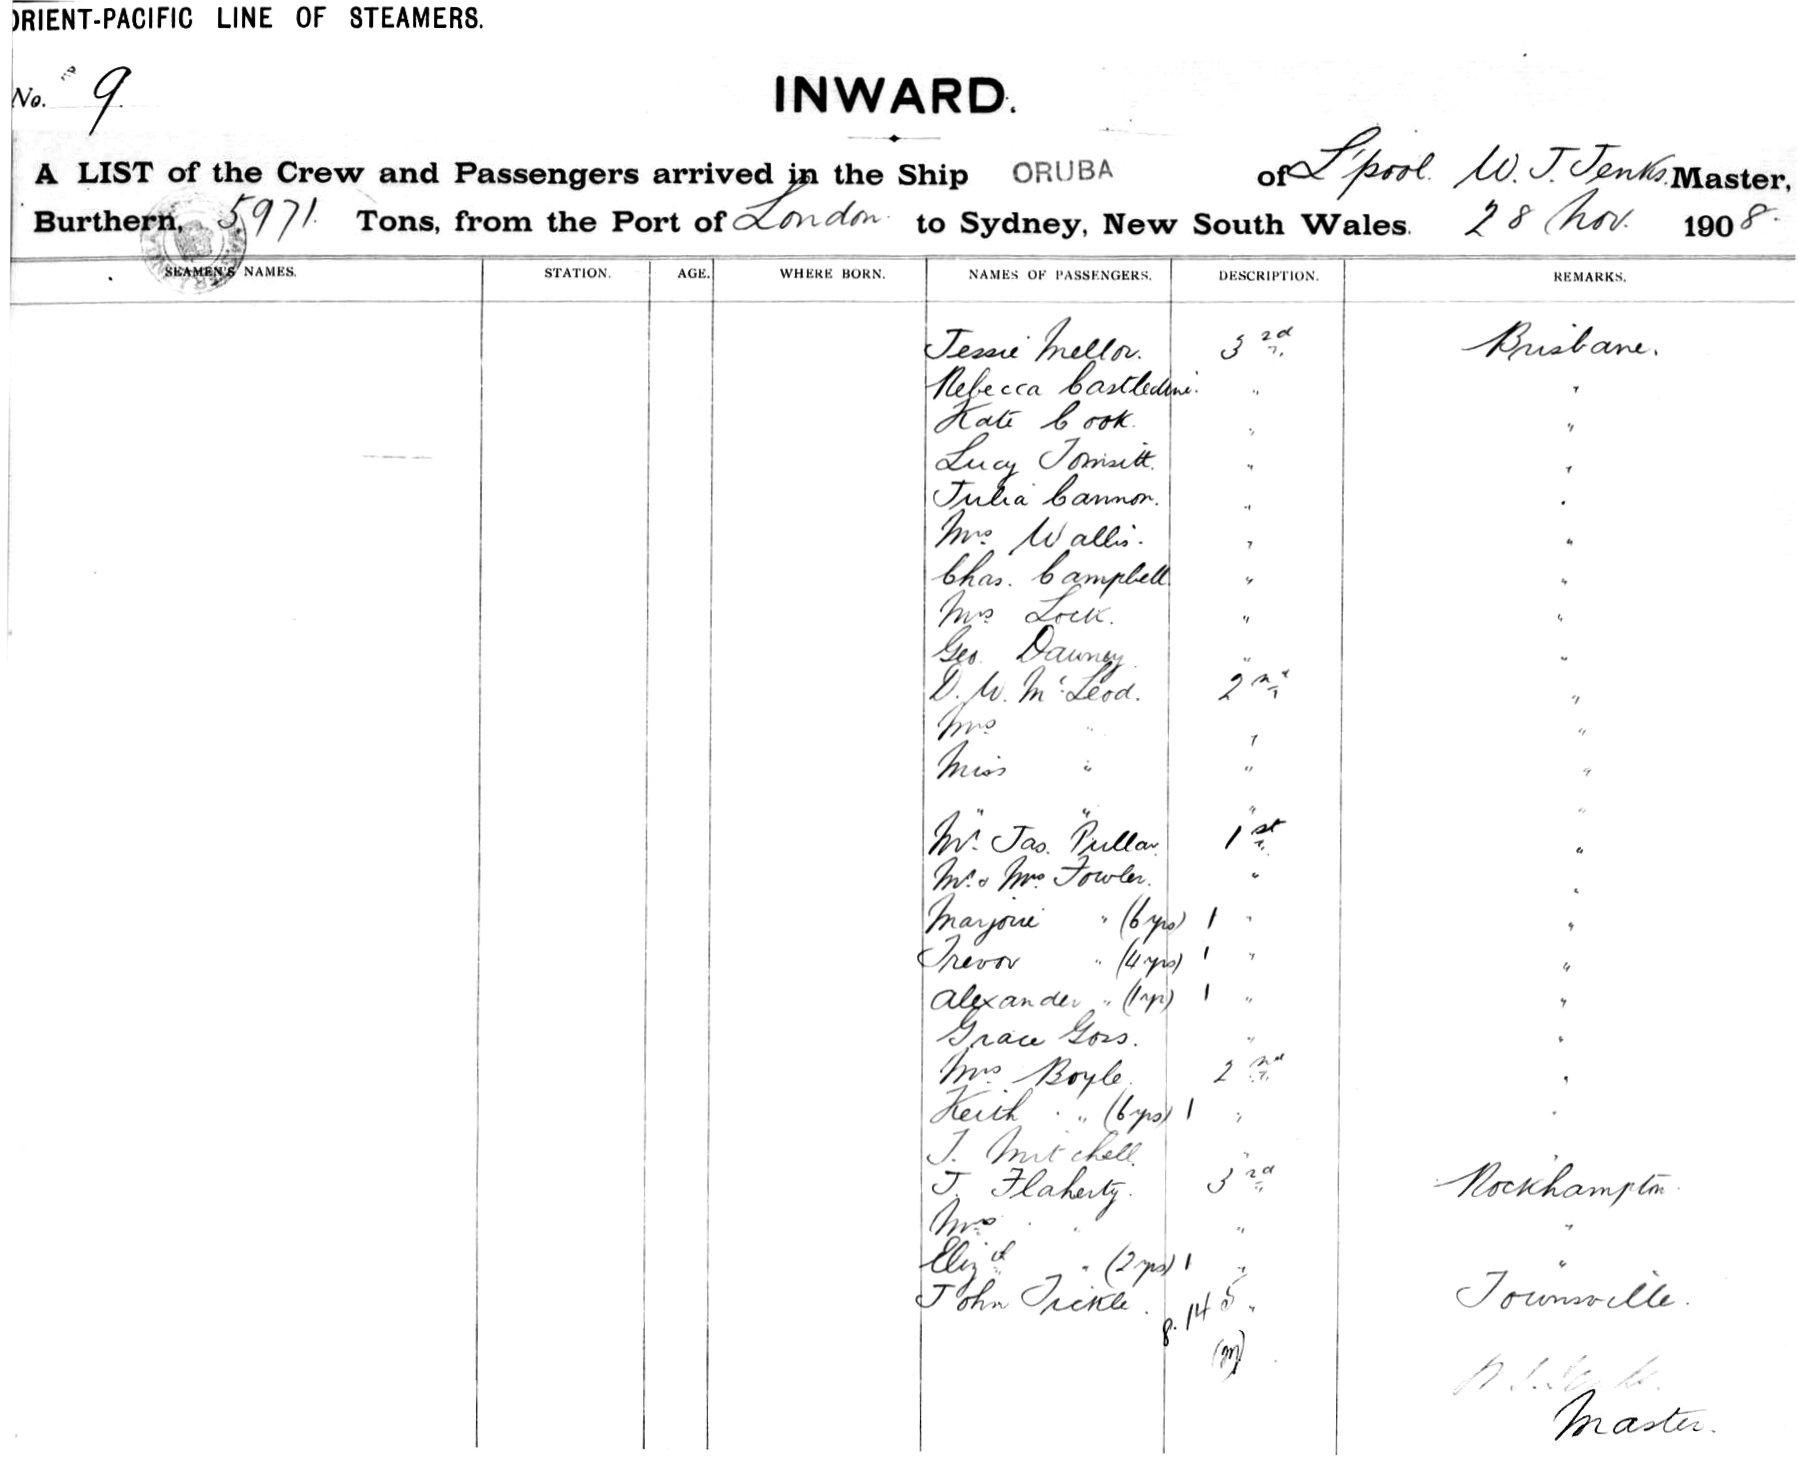 ORIENT-PACIFIC LINE OF STEAMERS.
No. 9.
INWARD.
A LIST of the Crew and Passengers arrived in the Ship ORUBA of L'pool. W. J. Jenks. Master,
Burthern, 5971. Tons, from the Port of London to Sydney, New South Wales. 28 Nov. 1908.
SEAMEN'S NAMES. STATION. AGE. WHERE BORN. NAMES OF PASSENGERS. DESCRIPTION. REMARKS.
Jessie Mellor. 3rd Brisbane.
Rebecca Castledine. " "
Kate Cook. " "
Lucy Tomsitt. " "
Julia Cannon. " "
Mrs Wallis. " "
Chas. Campbell. " "
Mrs Lock. " "
Geo. Dawney " "
D. W. McLeod. 2nd "
Mrs " " "
Miss " " "
" " " "
Mr. Jas. Pullar. 1st "
Mr. & Mrs. Fowler. " "
Marjorie " (6 yrs) 1 " "
Trevor " (4 yrs) 1 " "
Alexander " (1 yr) 1 " "
Grace Goss. " "
Mrs Boyle. 2nd "
Keith " (6 yrs) 1 " "
J. Mitchell. " "
J. Flaherty. 3rd Rockhampton.
Mrs " " "
Elizth " (2 yrs) 1 " "
John Tickle. " Townsville.
8. 14 5
(m)
Master.